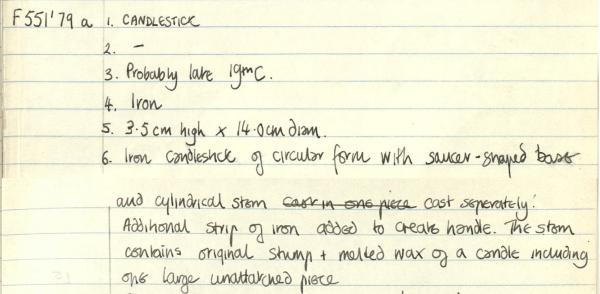 F551'79 a 1. CANDLESTICK
2. –
3. Probably late 19th C.
4. Iron
5. 3.5cm high x 14.0cm diam.
6. Iron candlestick of circular form with saucer-shaped base
and cylindrical stem cast in one piece cast seperately.
Additional strip of iron added to create handle. The stem
contains original stump + melted wax of a candle including
one large unattatched piece